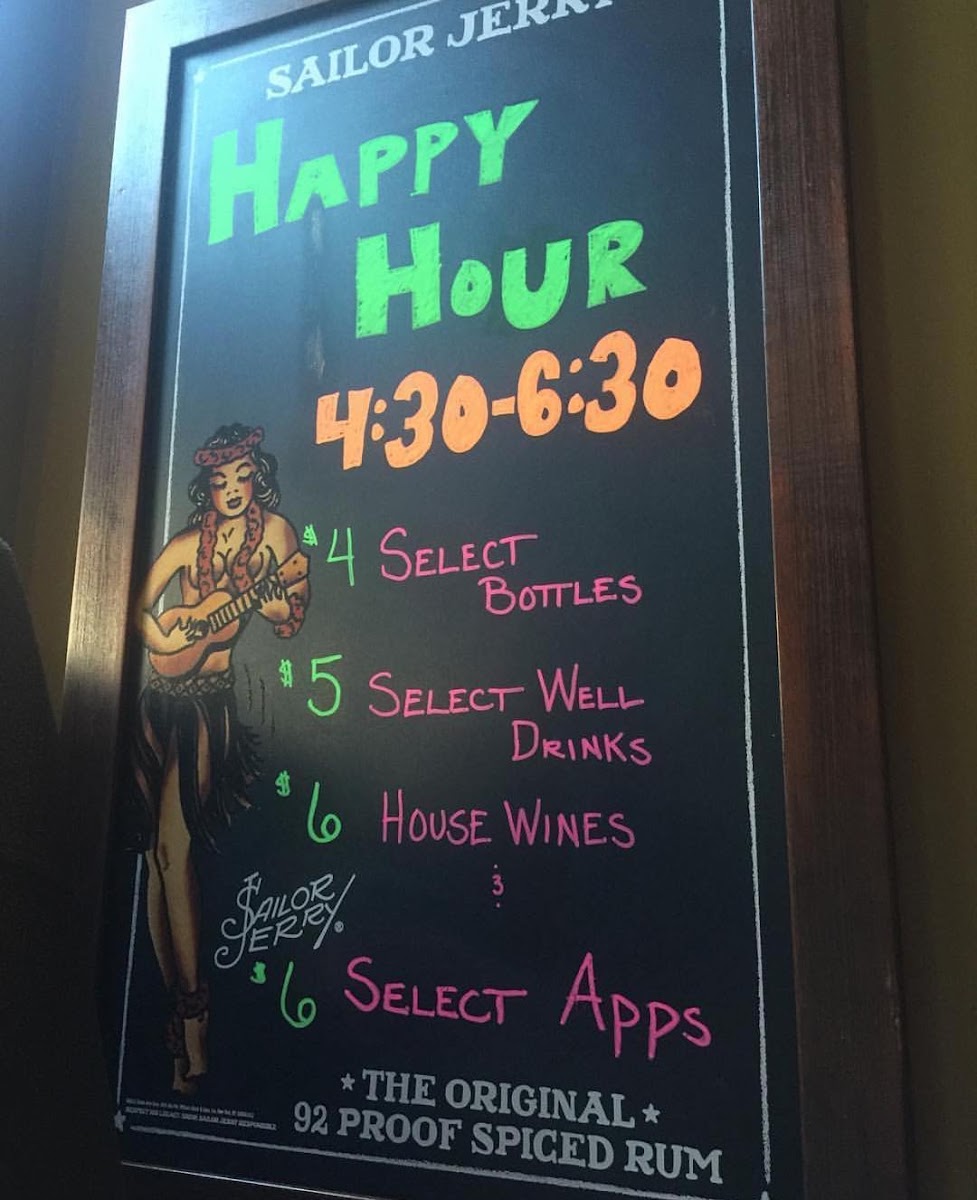 SAILOR JERRY
HAPPY
HOUR
4:30-6:30
$4 SELECT
BOTTLES
$5 SELECT WELL
DRINKS
$6 HOUSE WINES
&
SAILOR
JERRY®
$6 SELECT APPS
★ THE ORIGINAL ★
92 PROOF SPICED RUM